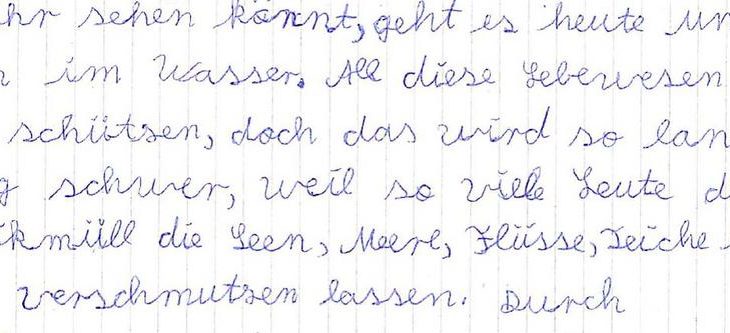 hr sehen könnt, geht es heute un
n im Wasser. All diese Lebewesen
schützen, doch das wird so lan
g schwer, weil so viele Leute d
ikmüll die Seen, Meere, Flüsse, Teiche
verschmutzen lassen. Durch